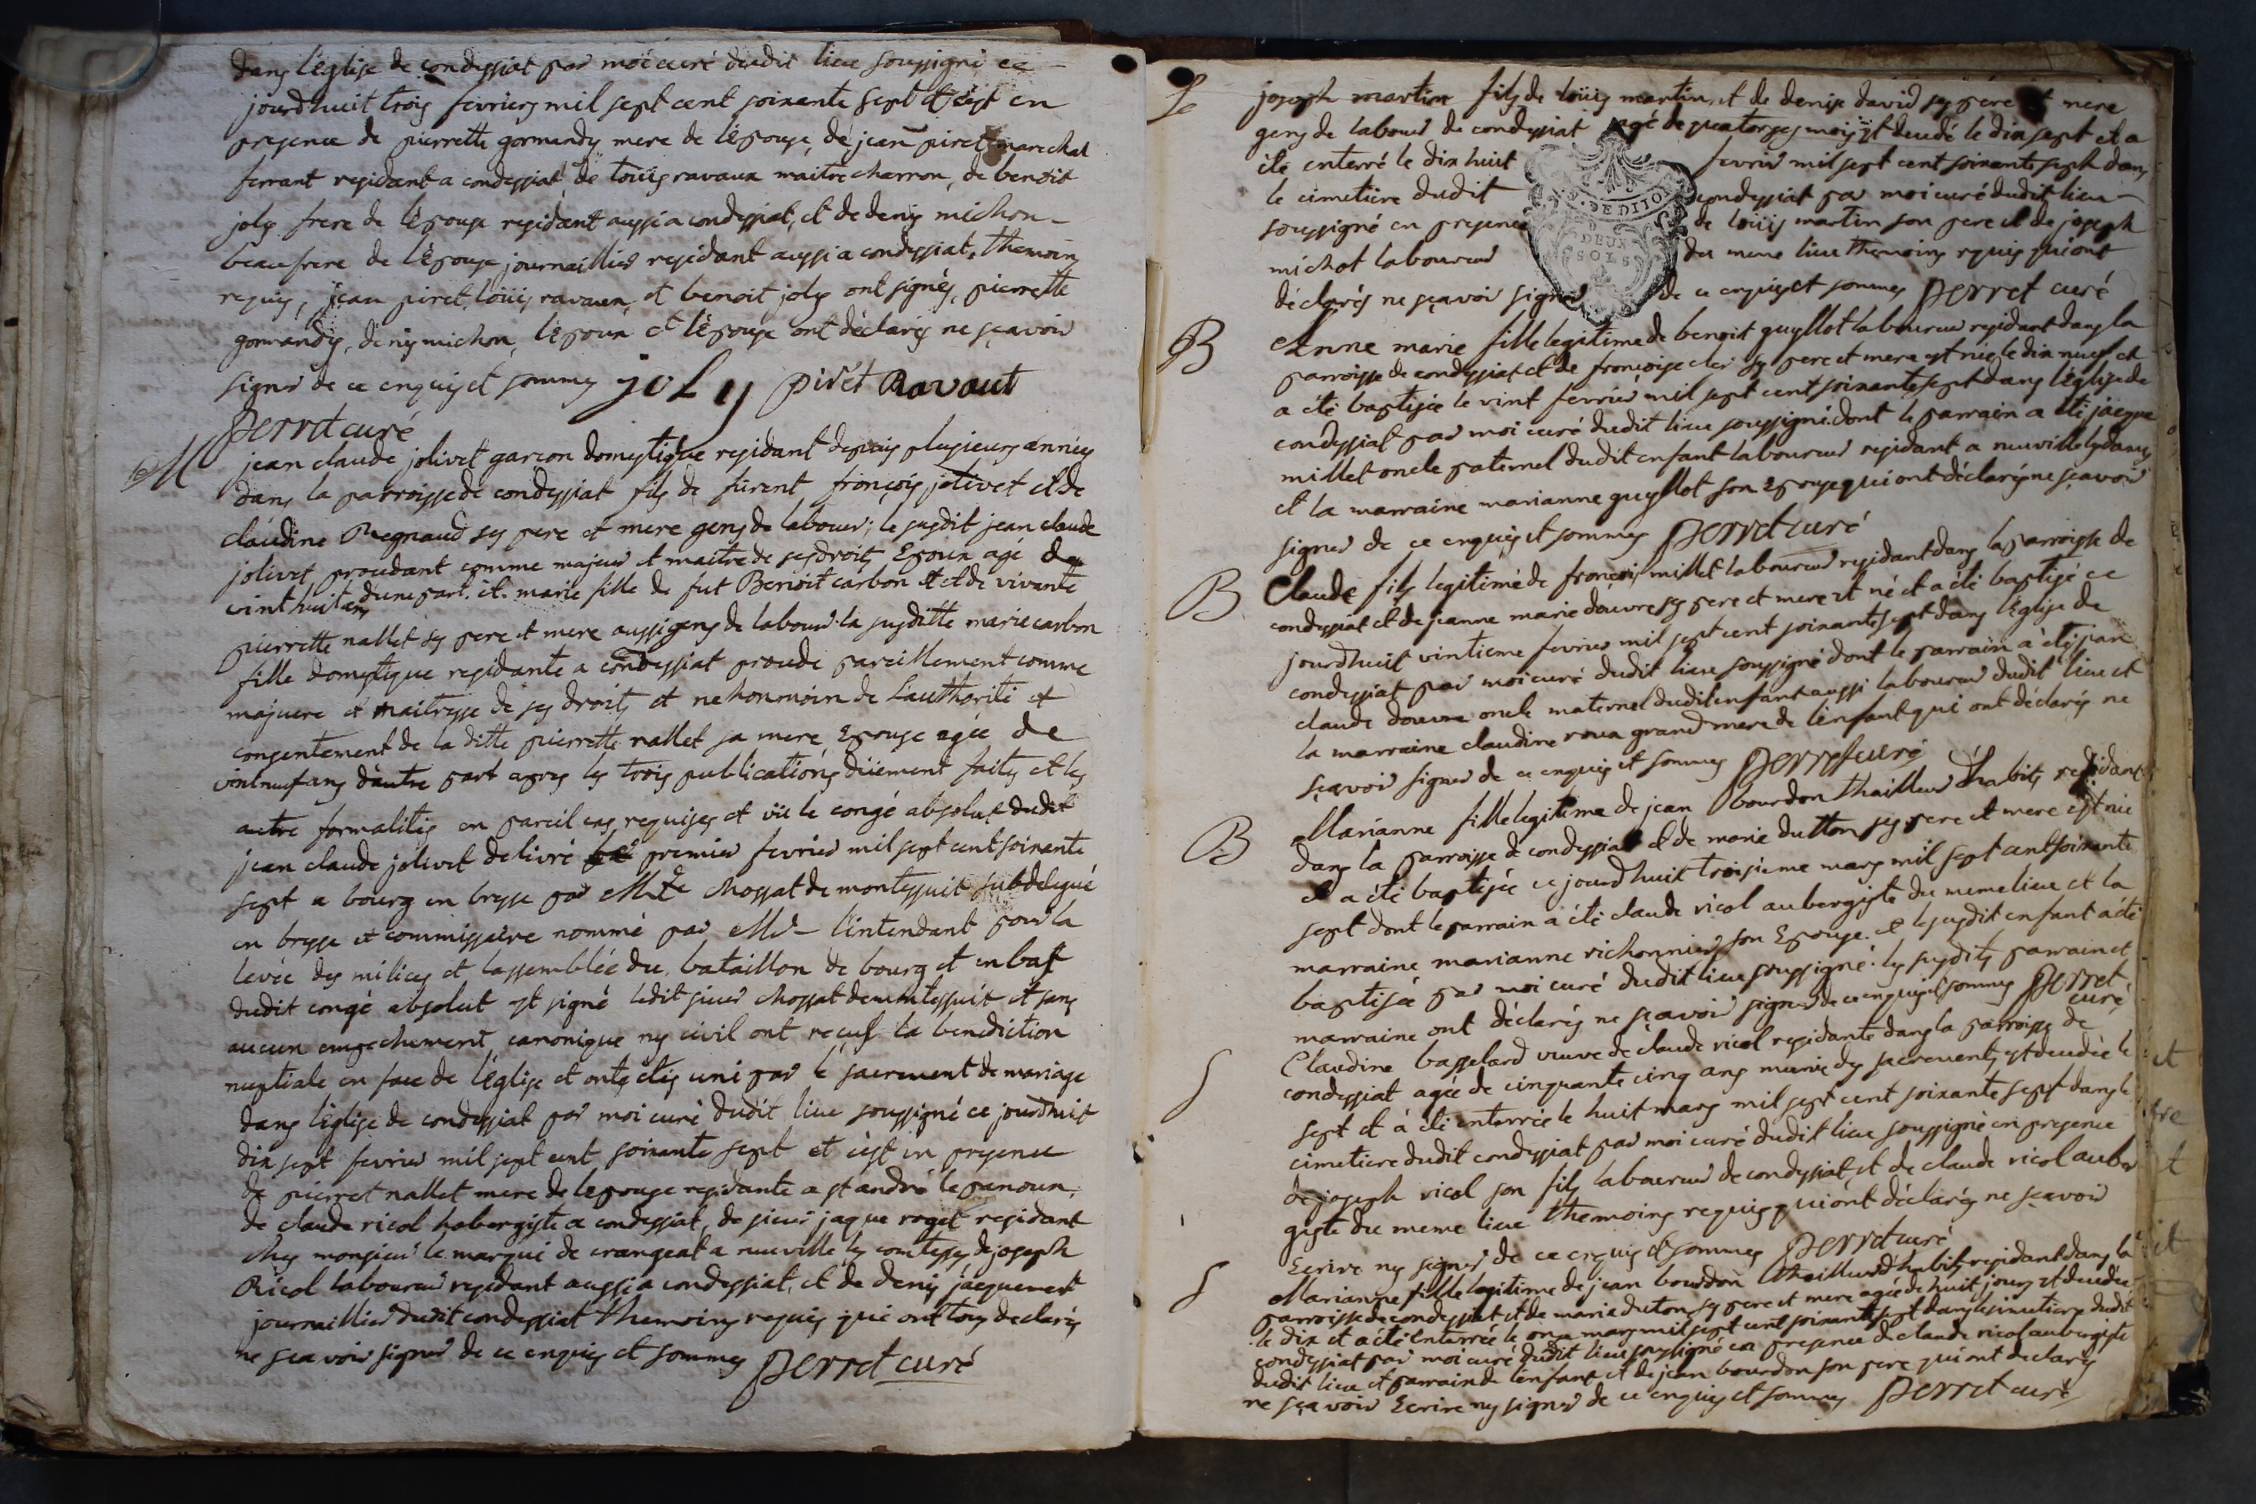 dans l'église de condeyssiat par moi curé dudit lieu soussigné ce
jourdhuit trois fevriers mil sept cent soixante sept et cest en
presence de pierrette gormandy mere de l'épouse, de jean piret marechal
ferrant residant a condeyssiat, de loüis ravaux maitre charron, de benoit
joly frere de l'épouse residant aussi a condeyssiat, et de denis michon
beaufrere de l'épouse journaillier residant aussi a condeyssiat, themoins
requis, jean piret, loüis ravaux, et benoit joly ont signés, pierrette
gormandy, denis michon, l'époux et l'épouse ont déclarés ne sçavoir
signer de ce enquis et sommes joly pirét Ravaut
perret curé
M jean claude jolivet garcon domestique residant depuis plusieurs années
dans la parroisse de condeyssiat fils de furent françois jolivet et de
claudine Regnaud ses pere et mere gens de labour; le susdit jean claude
jolivet procedant comme majeur et maitre de ses droits Epoux agé de
vint huit ans d'une part. et. marie fille de fut Benoit carbon et de vivante
pierrette nallet ses pere et mere aussi gens de labour. la susditte marie carbon
fille domestique residante a condeyssiat procede pareillement comme
majeure et maitresse de ses droits et nehonmoin de l'authorité et
consentement de la ditte pierrette nallet sa mere Epouse agée de
vint neuf ans d'autre part apres les trois publications düement faites et les
autre formalités en pareil cas requises et vü le congé absolut dudit
jean claude jolivet delivré premier fevrier mil sept cent soixante
sept a bourg en bresse par Mr chossat de montessuit subdelegué
en bresse et commissaire nommé par Mr l'intendant pour la
levée des milices et lassemblée du bataillon de bourg et en bas
dudit congé absolut est signé ledit sieur chossat demontessuit et sans
aucun empechement canonique ny civil ont recus la benediction
nuptiale en face de l'église et onts étés uni par le sacrement de mariage
dans l'église de condeyssiat par moi curé dudit lieu soussigné ce jourdhuit
dix sept fevrier mil sept cent soixante sept et cest in presence
de pierret nallet mere de lepouse residante a st andré le panoux,
de claude ricol habergiste a condeyssiat, de sieur jaque roget residant
chez monsieur le marqui de crangeat a neuville les comtesses de joseph
Ricol laboureur residant aussi a condeyssiat, et de denis jacquemet
journaillier dudit condeyssiat themoins requis qui ont tous declarés
ne sçavoir signer de ce enquis et sommes perret curé
Se joseph martin fils de loüis martin, et de denise david ses pere et mere
gens de labour de condeyssiat agé de quatorses mois est decedé le dix sept et a
été enterré le dix huit fevrier mil sept cent soixante sept dans
le cimetiere dudit condeyssiat par moi curé dudit lieu
soussigné en presence de loüis martin son pere et de joseph
michot laboureur du meme lieu themoins requis qui ont
déclarés ne sçavoir signer de ce enquis et sommes perret curé
G. DE DIJON
DEUX
SOLS
B Anne marie fille legitime de benoit guyllot laboureur residant dans la
parroisse de condeyssiat et de françoise cler ses pere et mere est née le dix neuf et
a été baptisée le vint fevrier mil sept cent soixante sept dans l'église de
condeyssiat par moi curé dudit lieu soussigné. dont le parrain a été jacque
millet oncle paternel dudit enfant laboureur residant a neuville les dames
et la marraine marianne guyllot son Epouse qui ont déclarés ne sçavoir
signer de ce enquis et sommes perret curé
B Claude fils legitime de françois millet laboureur residant dans la parroisse de
condeyssiat et de jeanne marie douvre ses pere et mere est né et a été baptisé ce
jourdhuit vintieme fevrier mil sept cent soixante sept dans l'église de
condeyssiat par moi curé dudit lieu soussigné dont le parrain a été jean
claude douvre oncle maternel dudit enfant aussi laboureur dudit lieu et
la marraine claudine roux grand mere de l'enfant qui ont déclarés ne
sçavoir signer de ce enquis et sommes perret curé
B Marianne fille legitime de jean bourdon thailleur d'habits residant
dans la parroisse de condeyssiat et de marie dutton ses pere et mere est née
et a été baptisée ce jourdhuit troisieme mars mil sept cent soixante
sept dont le parrain a été claude ricol aubergiste du meme lieu et la
marraine marianne richonnier son Epouse. et le susdit enfant a été
baptisée par moi curé dudit lieu soussigné. les susdits parrain et
marraine ont déclarés ne sçavoir signer de ce enquis et sommes perret
curé
S Claudine basselard veuve de claude ricol residante dans la parroisse de
condeyssiat agée de cinquante cinq ans munie des sacrements est decedée le
sept et à été enterrée le huit mars mil sept cent soixante sept dans le
cimetiere dudit condeyssiat par moi curé dudit lieu soussigné en presence
de joseph ricol son fils laboureur de condeyssiat, et de claude ricol auber
giste du meme lieu themoins requis qui ont déclarés ne sçavoir
Ecrire ny signer de ce enquis et sommes perret curé
S Marianne fille legitime de jean bourdon thailleur d'habits residant dans la
parroisse de condeyssiat et de marie dutton ses pere et mere agée de huit jours est decedée
le dix et a été Enterrée le onze mars mil sept cent soixante sept dans le cimetiere dudit
condeyssiat par moi curé dudit lieu soussigné en presence de claude ricol aubergiste
dudit lieu et parrain de l'enfant et de jean bourdon son pere qui ont declarés
ne sçavoir Ecrire ny signer de ce enquis et sommes perret curé